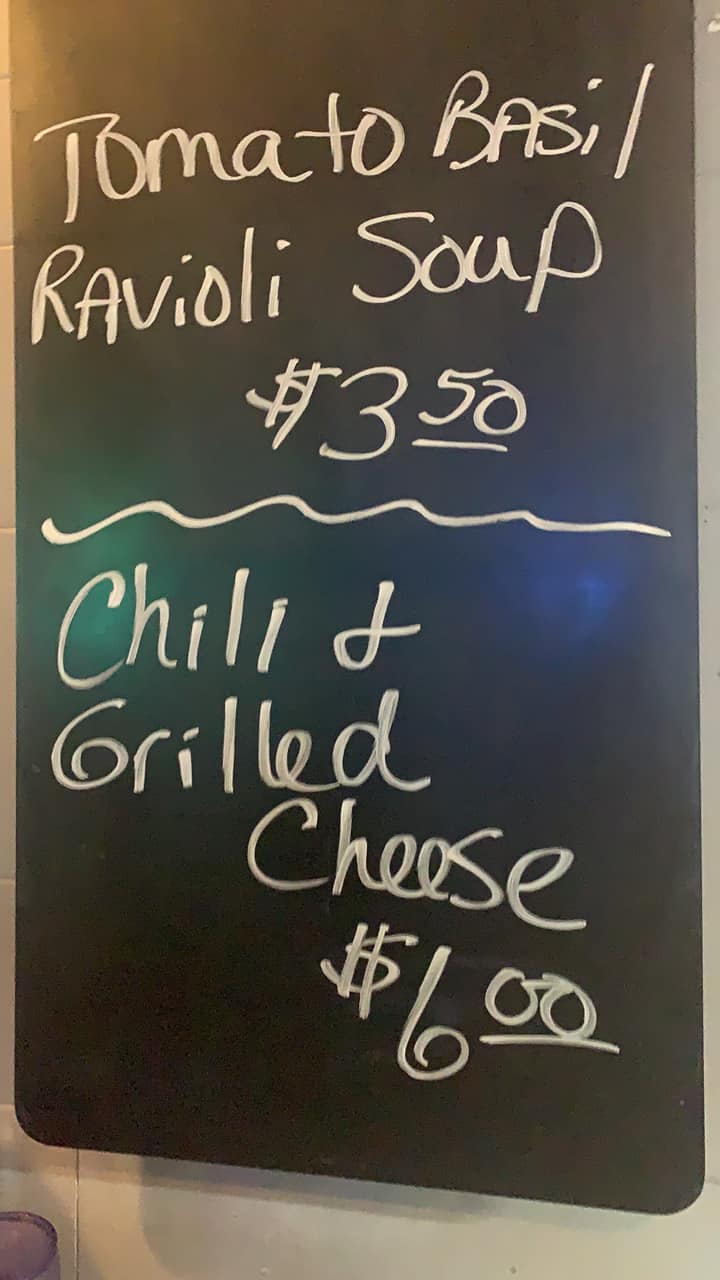 Tomato BASil
RAvioli Soup
$3 50
Chili &
Grilled
Cheese
$6 00